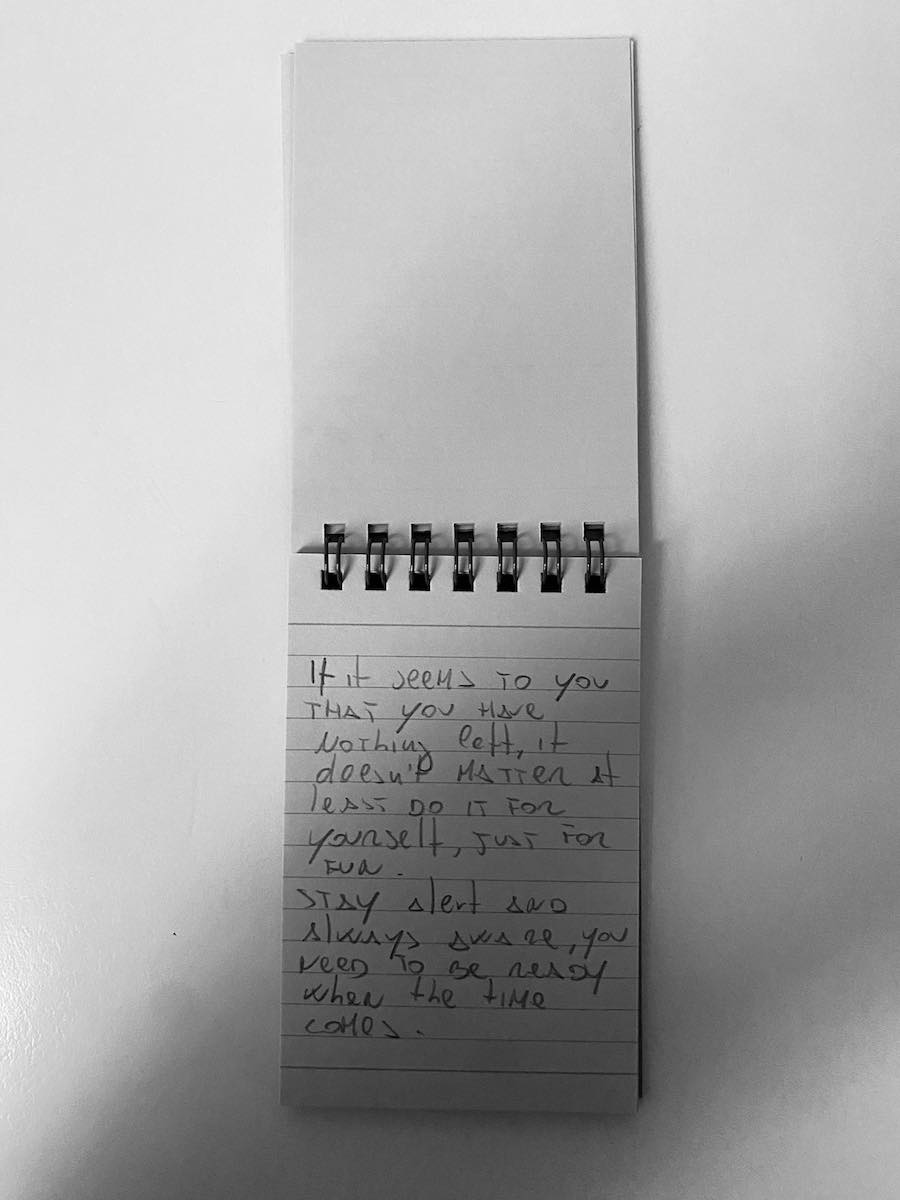 If it seems TO you
THAT you HAVE
NOTHING left, it
doesn't MATTER at
least DO IT FOR
yourself, JUST FOR
FUN.
STAY alert AND
always aware, you
NEED TO BE READY
when the TIME
COMES.